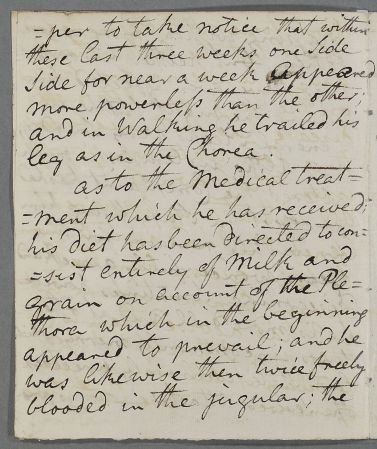 =per to take notice that within
these last three weeks one side
side for near a week appeared
more powerless than the other;
and in walking he trailed his
leg as in the Chorea.
as to the Medical treat=
=ment which he has received;
his diet has been directed to con=
=sist entirely of Milk and
grain on account of the Ple=
thora which in the beginning
appeared to prevail; and he
was likewise then twice freely
blooded in the jugular; the